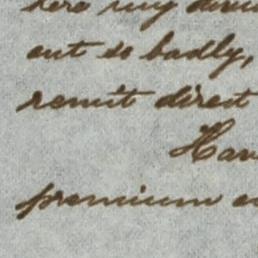 here my
out so badly,
remit direct
Hav
premium